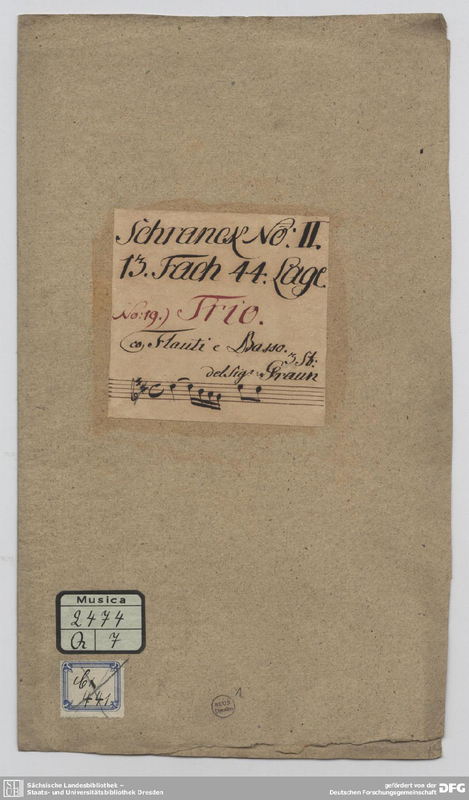 Schranck No: II.
13. Fach 44. Lage.
No: 19.) Trio.
co Flauti e Basso.
3 St:
del Sigr Graun
Musica
2474
O 7
441
1
Sächsische Landesbibliothek –
Staats- und Universitätsbibliothek Dresden
gefördert von der
Deutschen Forschungsgemeinschaft
DFG